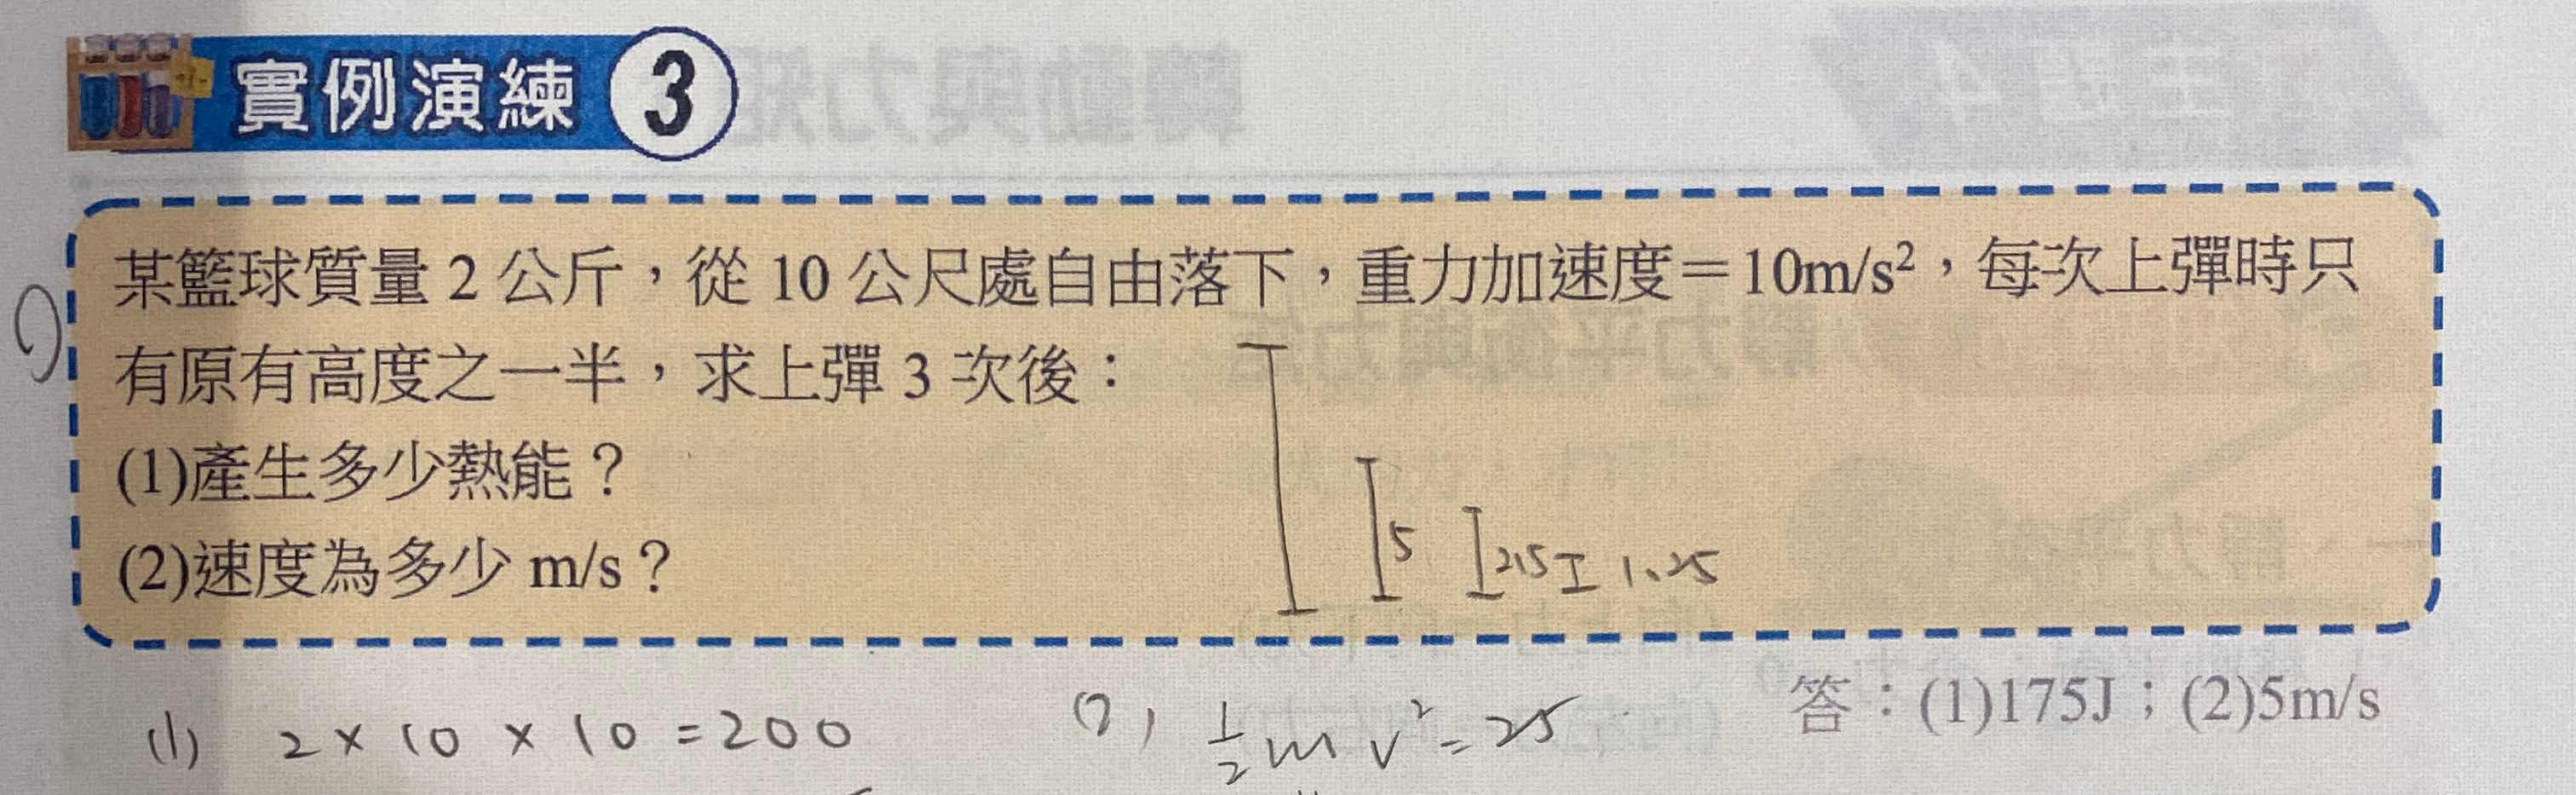 實例演練 3
某籃球質量 2 公斤，從 10 公尺處自由落下，重力加速度＝10m/s²，每次上彈時只
有原有高度之一半，求上彈 3 次後：
(1)產生多少熱能？
(2)速度為多少 m/s？
5 2.5 1.25
答：(1)175J；(2)5m/s
(1) 2 × 10 × 10 = 200
(2) ½mv² = 25